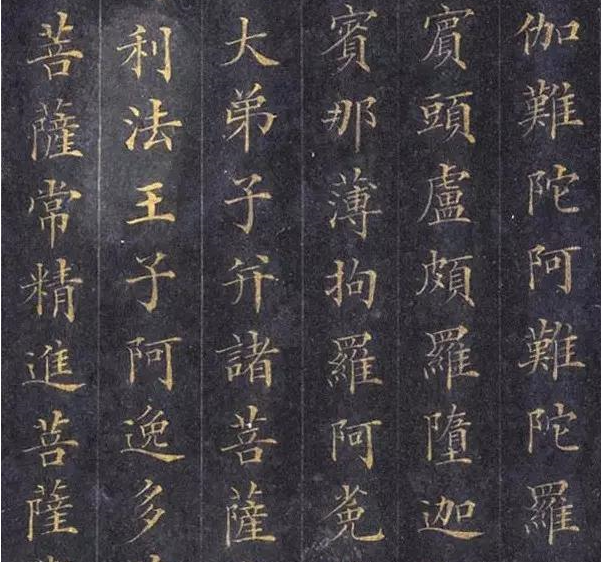 伽難陀阿難陀羅
賔頭盧頗羅墮迦
賓那薄拘羅阿㝹
大弟子并諸菩薩
利法王子阿逸多
菩薩常精進菩薩